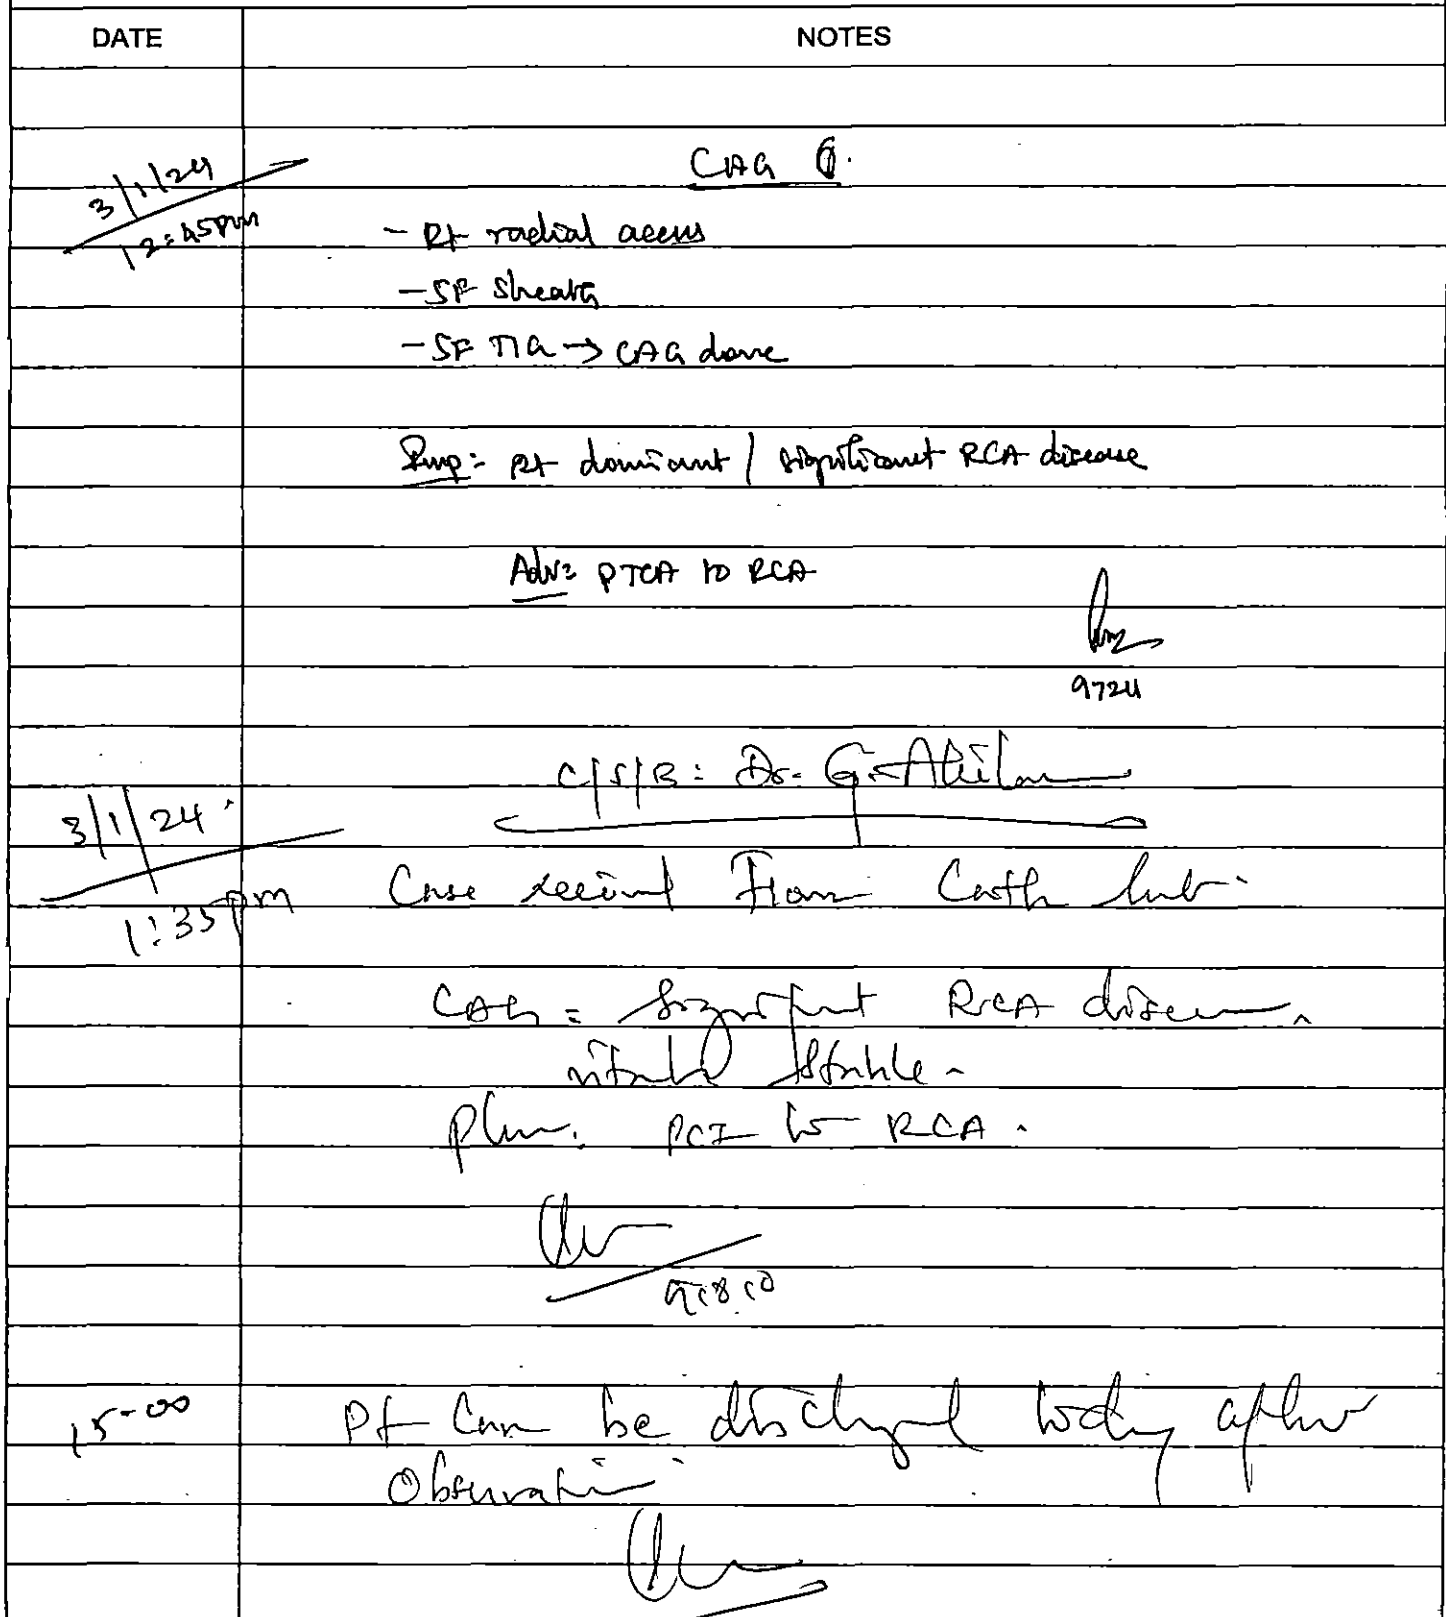 DATE NOTES
CAG
3/1/24
12:45pm
- Rt radial access
- 5F sheath
- 5F TIG → CAG done
Imp: Rt dominant / significant RCA disease
Adv: PTCA to RCA
9724
C/S/B: Dr. G.
3/1/24
1:35pm
Case received From Cath lab
CAG = Significant RCA disease
vitals stable
plan: PCI to RCA.
15-00 Pt Can be discharged today after
Observation